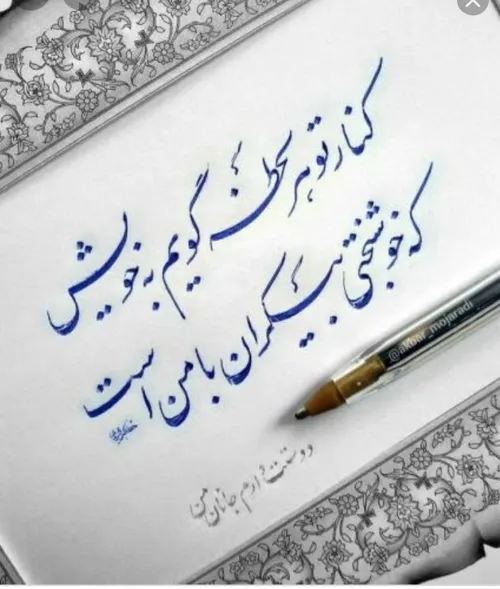 کنار تو هر لحظه گویم به خویش
که خوشبختی بیکران با من است
دوستت دارم جانان من
@akbar_mojaradi